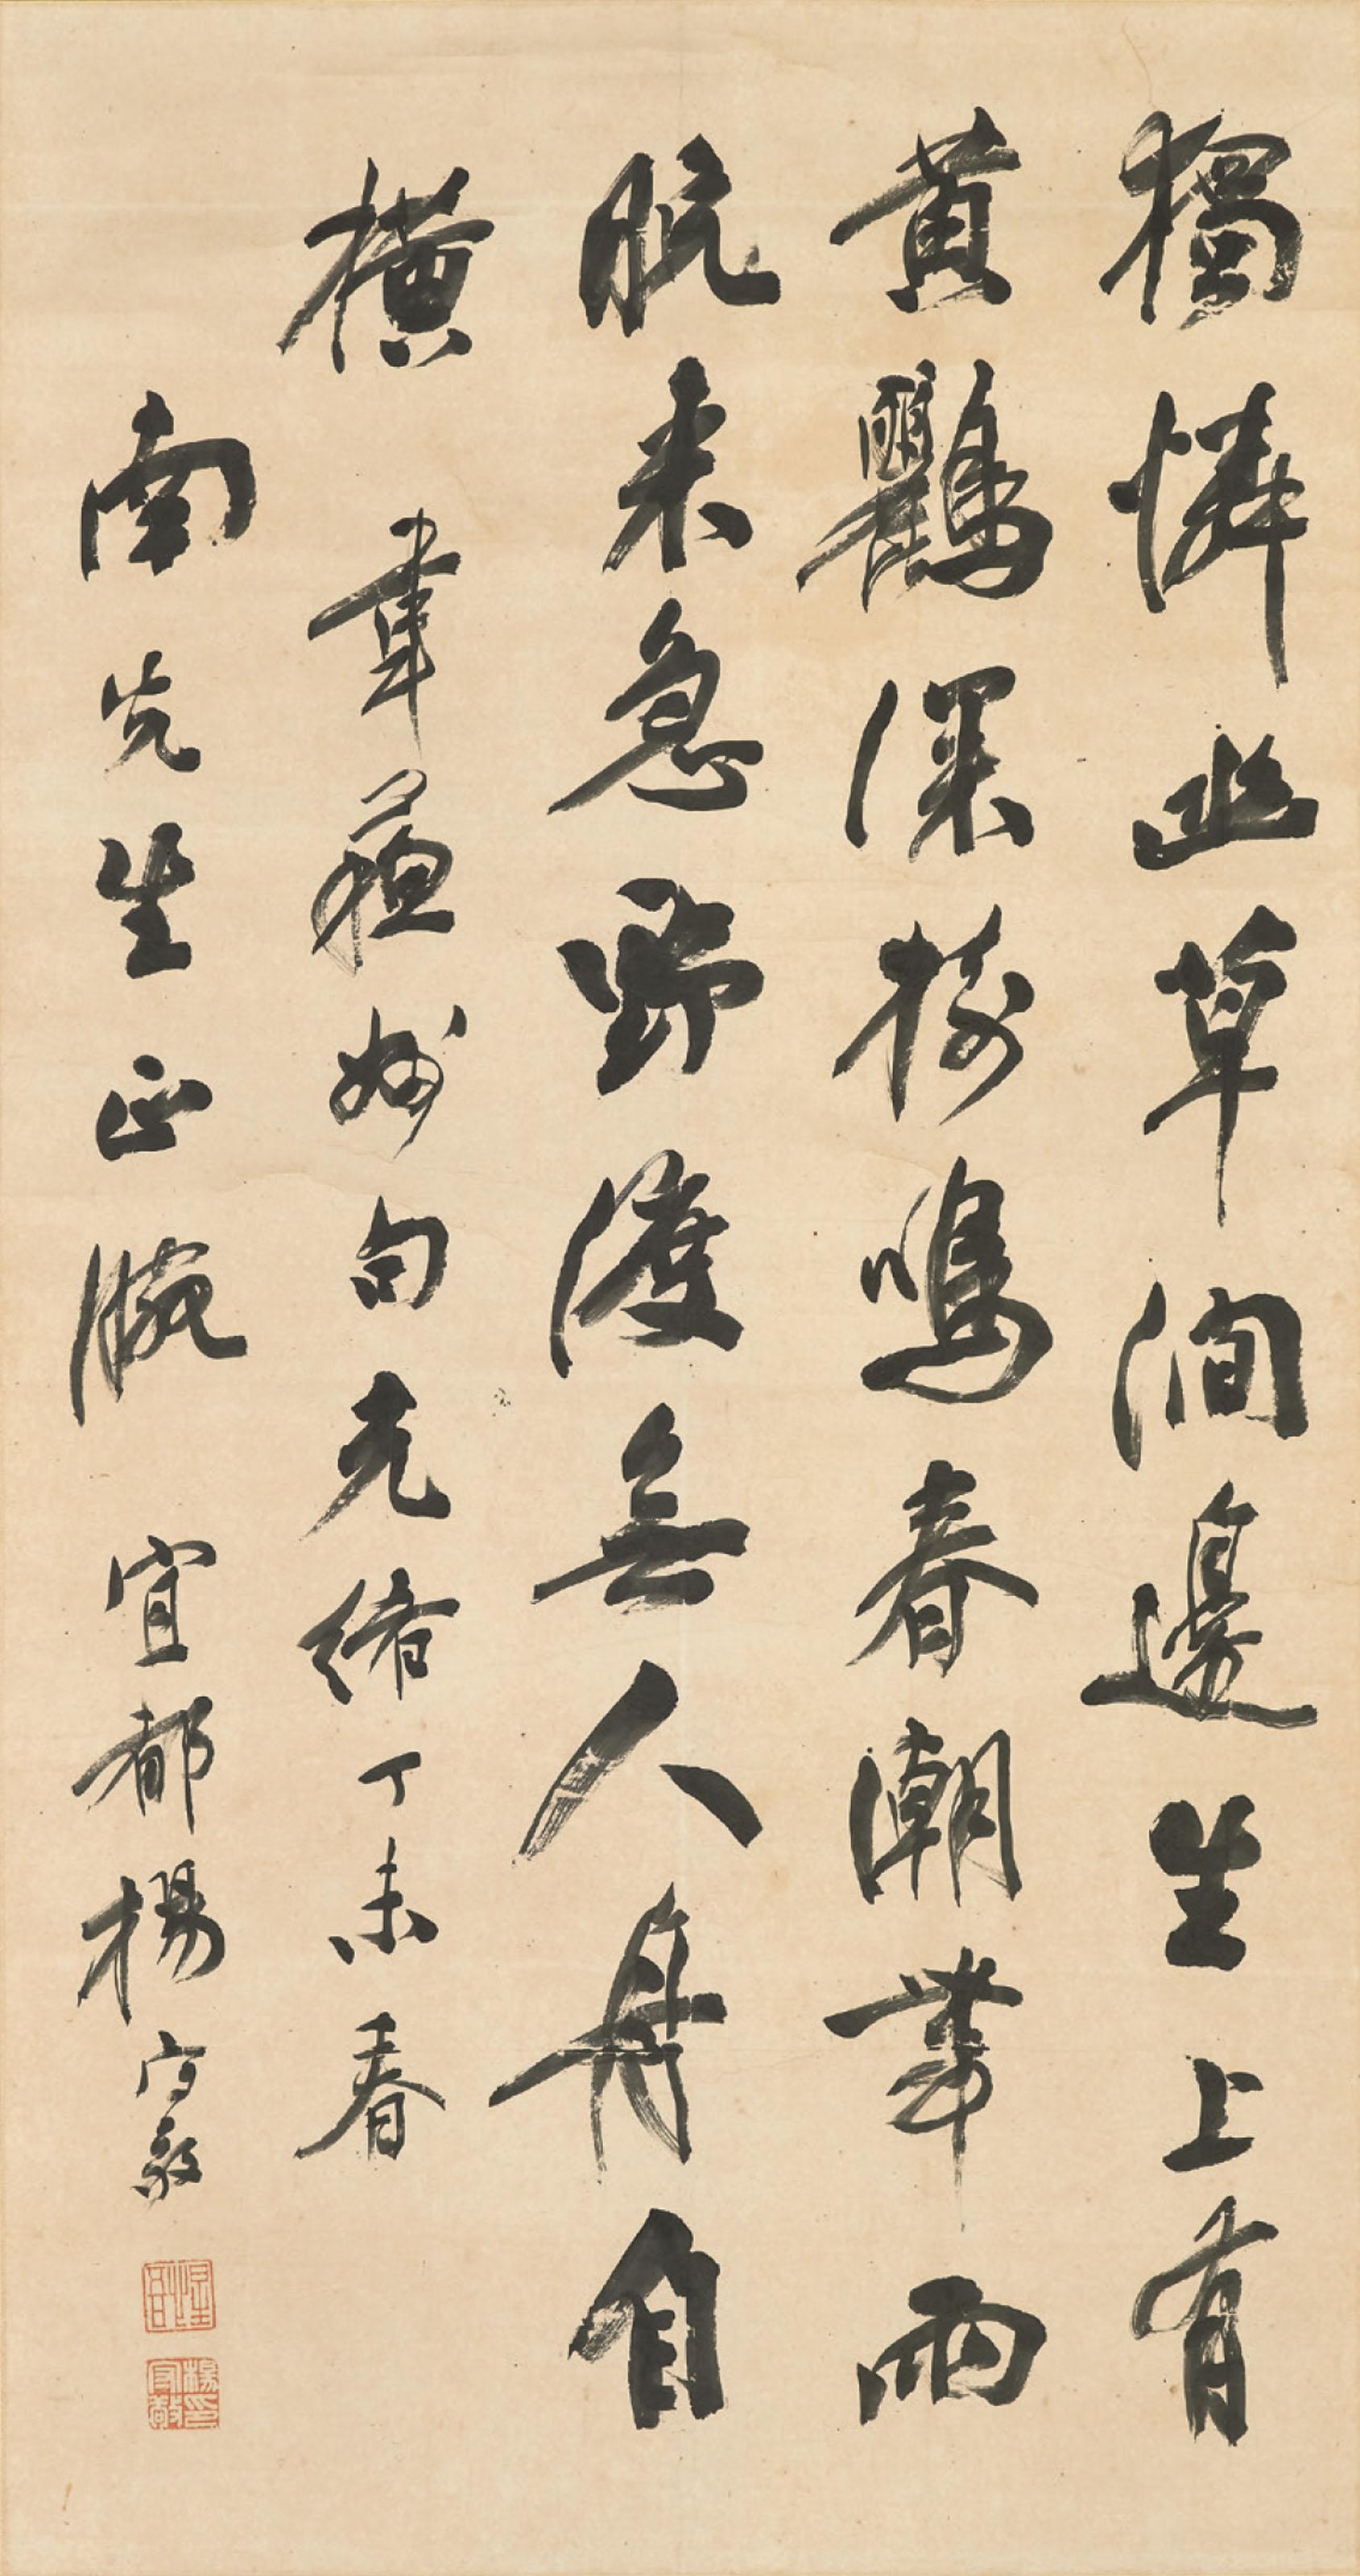 獨憐幽草澗邊生上有
黃鸝深樹鳴春潮帶雨
晚來急野渡無人舟自
橫 韋蘇州句光緒丁未春
南先生正腕 宜都楊守敬
惺吾
楊守敬印